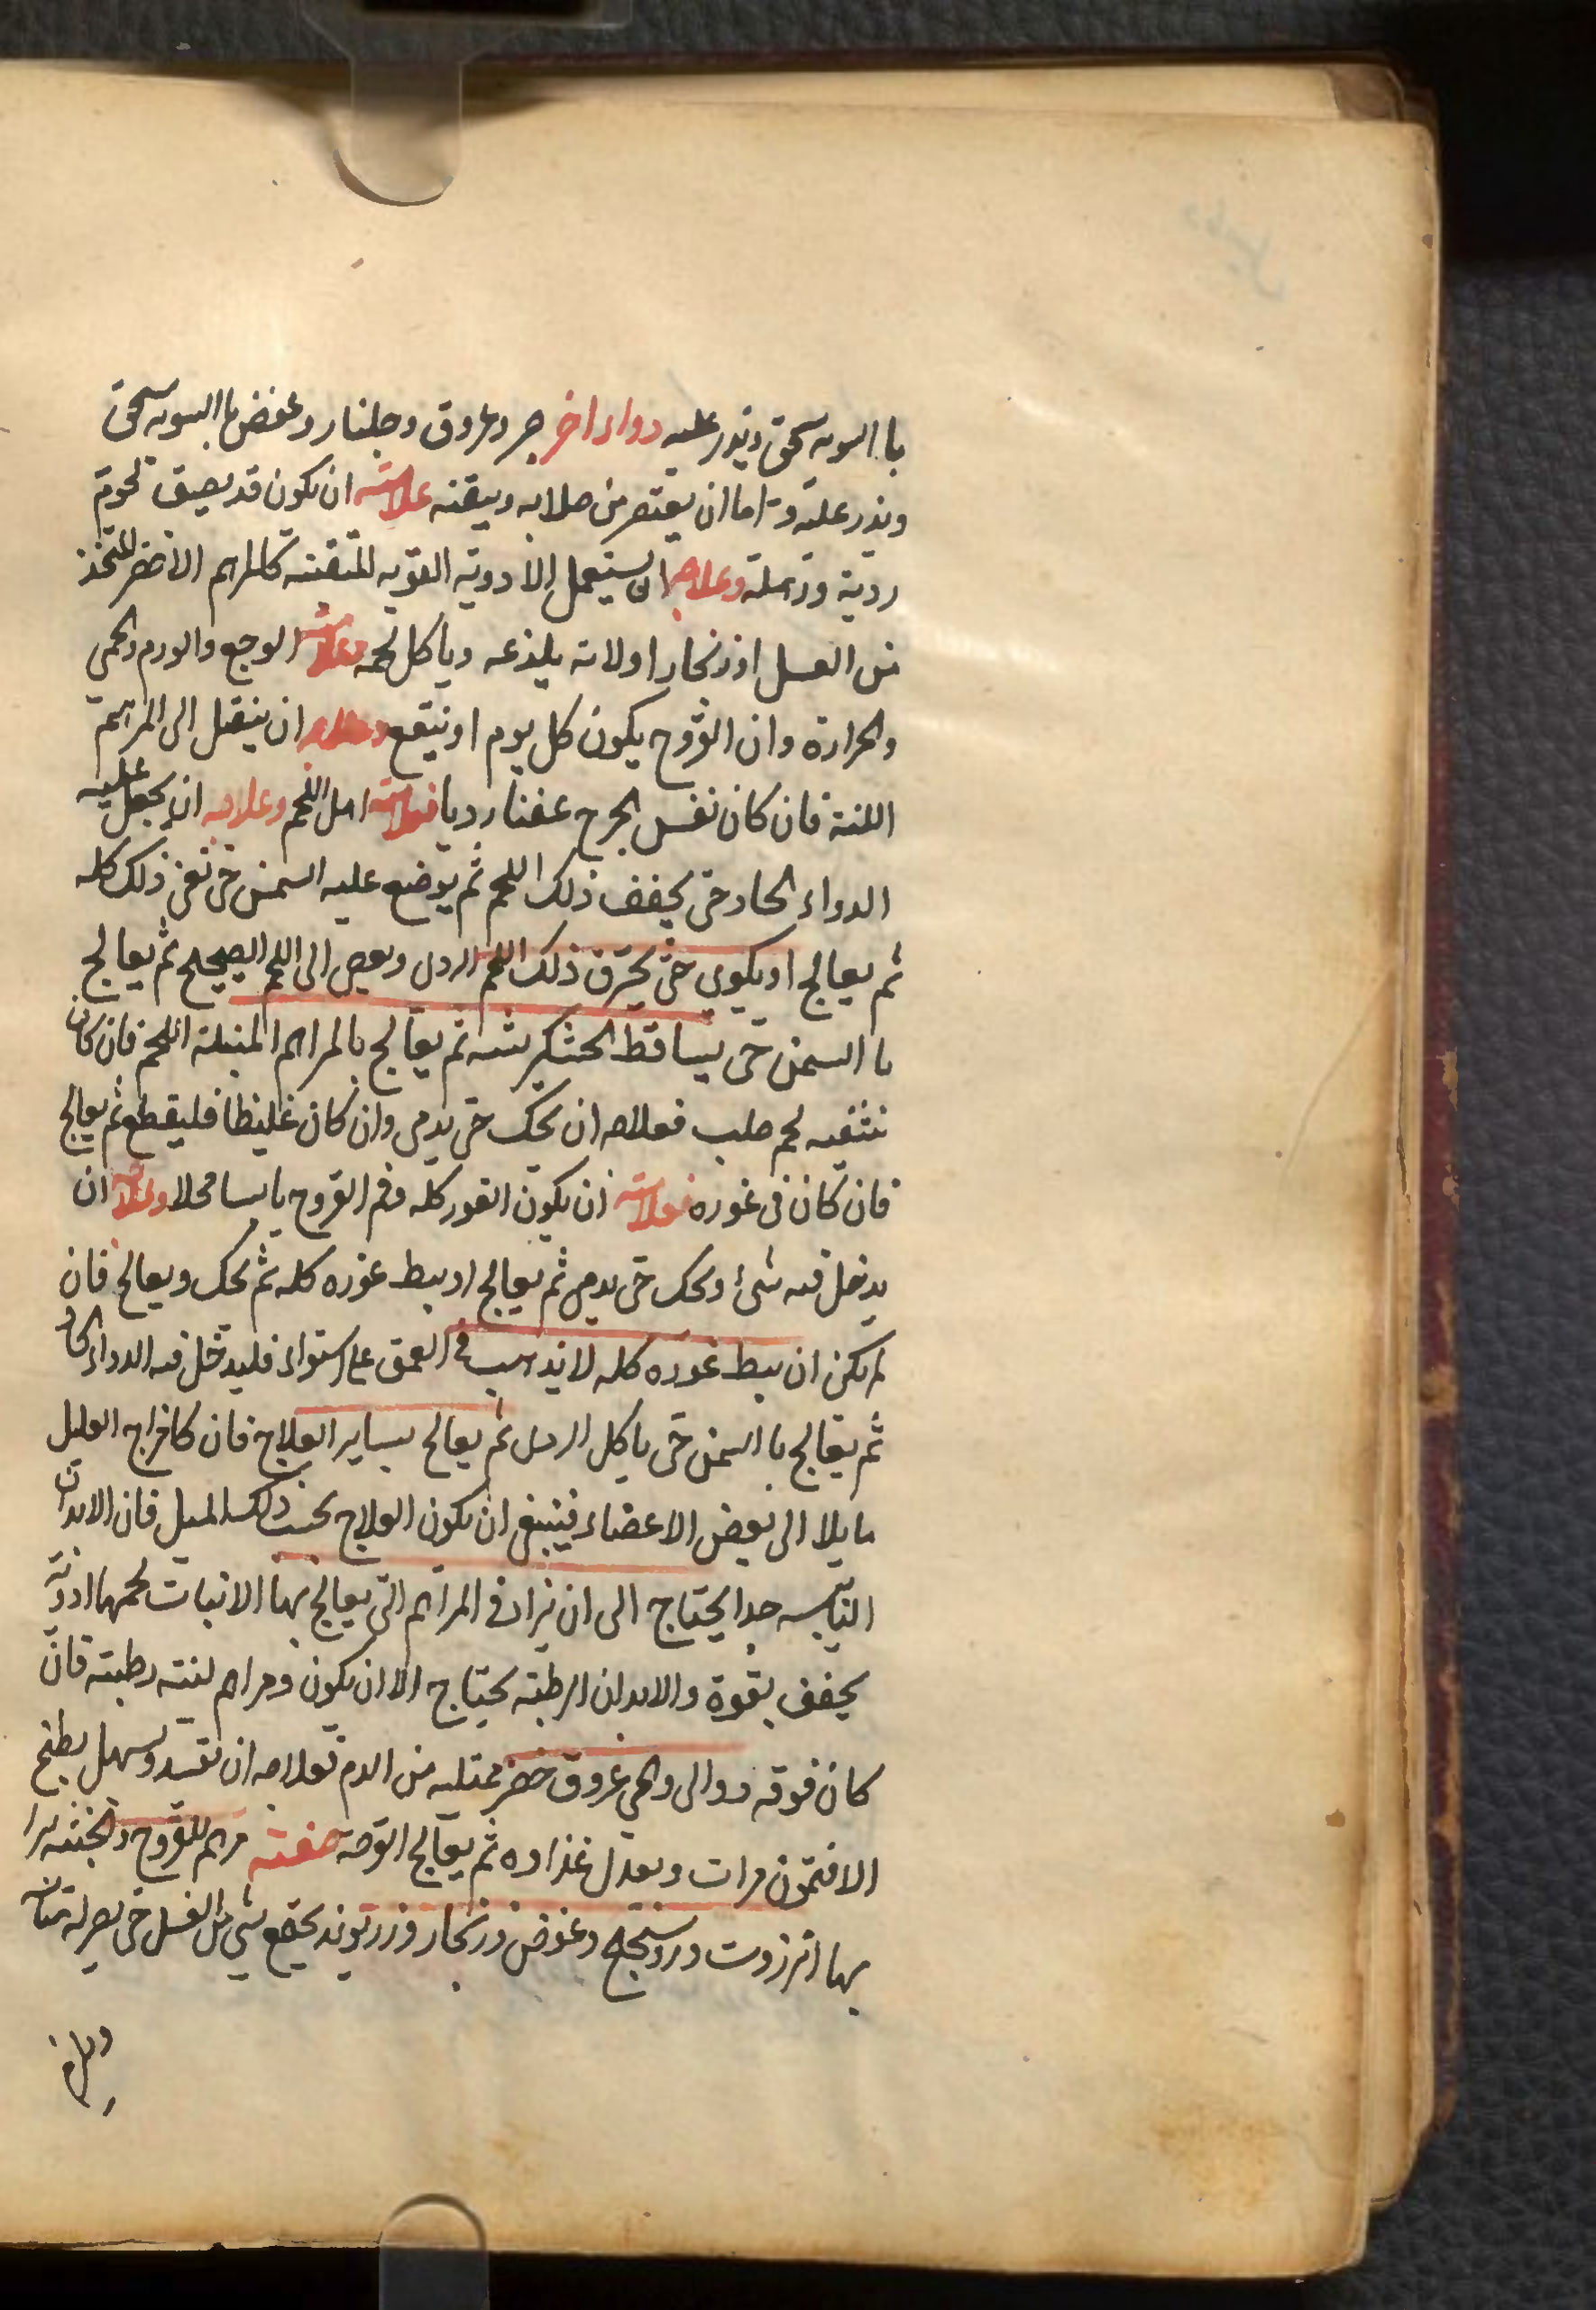 با السويه يسحق ويذر عليه دواء اخر جر وعروق وجلنار وعفص با السويه يسحق
ويذر عليه واما ان يقتصر من صلابه ويبقيه علامته ان يكون قد يصيق لحوم
ردية ورهلة وعلاجه ان يستعمل الادوية القويه المنقيته كالمرهم الاخضر المتخذ
من العسل اوزنجار اولانه يلذعه وياكل لحمه وعلامته الوجع والورم والحمى
والحرارة وان القروح يكون كل يوم اوسع وعلاجه ان ينقل الى المراهم
اللينة فان كان نفس الجرح عفنا رديا فعلامته اكل اللحم وعلاجه ان يجعل عليه
الدواء الحاد حتى يجفف ذلك اللحم ثم يوضع عليه السمن حتى نفى ذلك كله
ثم يعالج او يكوى حتى يحترق ذلك اللحم الردى ويصير الى اللحم الصحيح ثم يعالج
با السمن حتى يساقط الخشكريشه ثم يعالج بالمراهم المنبتة اللحم فان كان
شفته لحم صلب فعلاجه ان يحك حتى يدمى وان كان غليظا فليقطع ثم يعالج
فان كان فى غوره فعلامته ان يكون الغور كله وفم القروح يابسا قحلا وعلاجه ان
يدخل فيه شئ ويحك حتى يدمى ثم يعالج او يبط غوره كله ثم يحك ويعالج فان
لم يكن ان يبط غوره كله لانه يذهب فى العمق على استواء فليدخل فيه الدواء الحاد
ثم يعالج با السمن حتى ياكل الردى ثم يعالج بساير العلاج فان كان مزاج العليل
مايلا الى بعض الاعضاء فينبغى ان يكون العلاج بحسب ذلك الميل فان الابدان
اليابسه جدا يحتاج الى ان يزاد فى المراهم التى يعالج بها الانبات لحمها ادوية
يجفف بقوة والابدان الرطبته يحتاج الا ان يكون ومراهم لينته رطبته فان
كان فوقه دوالى والحى عروق خضر ممتليه من الدم فعلاجه ان يفسد ويسهل بطبخ
الافتمون مرات ويعدل غذاوه ثم يعالج القوحه صفته مرهم للقروح والخبيثه يبرا
بها انزروت وروسختج وعفص وزنجار وزرتوند يجمع شى مثل العسل حتى يصير له متان